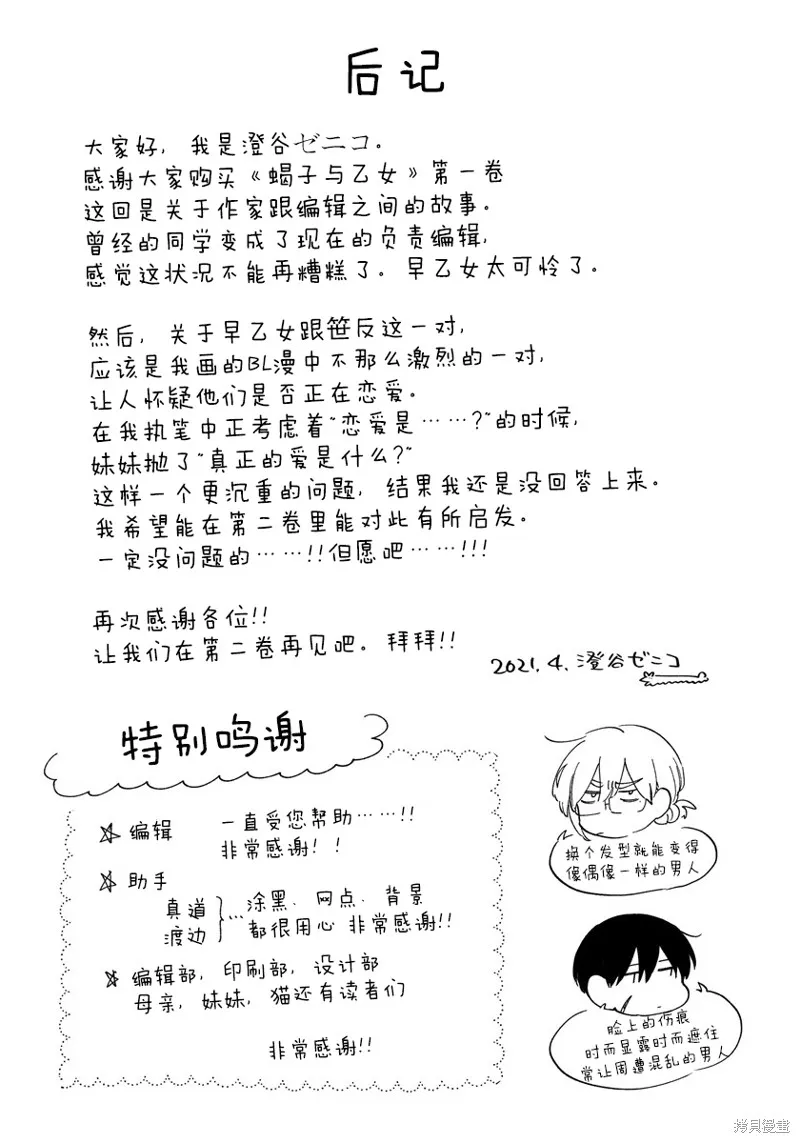 后记
大家好，我是澄谷ゼニコ。
感谢大家购买《蝎子与乙女》第一卷
这回是关于作家跟编辑之间的故事。
曾经的同学变成了现在的负责编辑，
感觉这状况不能再糟糕了。早乙女太可怜了。
然后，关于早乙女跟笹反这一对，
应该是我画的BL漫中不那么激烈的一对，
让人怀疑他们是否正在恋爱。
在我执笔中正考虑着“恋爱是……?”的时候，
妹妹抛了“真正的爱是什么?”
这样一个更沉重的问题，结果我还是没回答上来。
我希望能在第二卷里能对此有所启发。
一定没问题的……!!但愿吧……!!!
再次感谢各位!!
让我们在第二卷再见吧。拜拜!!
2021.4.澄谷ゼニコ
特别鸣谢
☆编辑 一直受您帮助……!!
非常感谢!!
☆助手
真道
渡边
…涂黑、网点、背景
都很用心 非常感谢!!
☆编辑部，印刷部，设计部
母亲，妹妹，猫还有读者们
非常感谢!!
换个发型就能变得
像偶像一样的男人
脸上的伤痕
时而显露时而遮住
常让周遭混乱的男人
拷貝漫畫